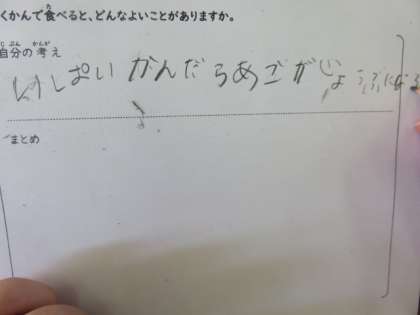 くかんで食べると、どんなよいことがありますか。
自分の考え
いっぱい かんだらあごがじょうぶになる
まとめ